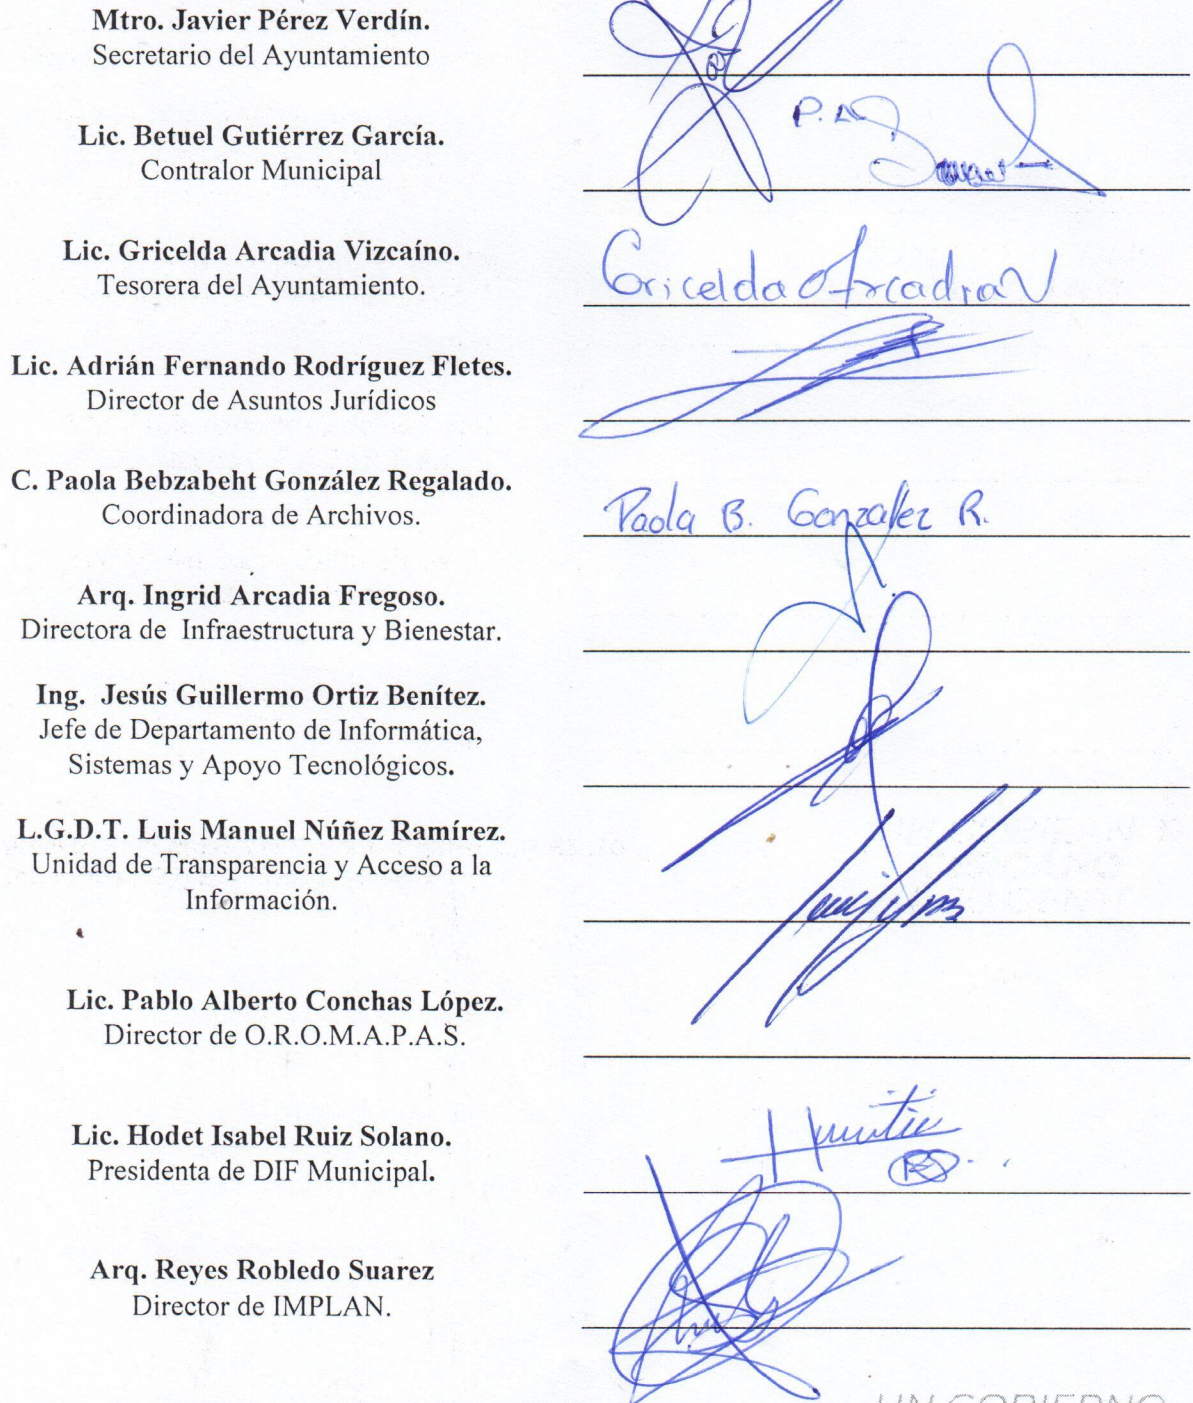 Mtro. Javier Pérez Verdín.
Secretario del Ayuntamiento
Lic. Betuel Gutiérrez García.
Contralor Municipal
P. A
Lic. Gricelda Arcadia Vizcaíno.
Tesorera del Ayuntamiento.
Gricelda Arcadia V
Lic. Adrián Fernando Rodríguez Fletes.
Director de Asuntos Jurídicos
C. Paola Bebzabeht González Regalado.
Coordinadora de Archivos.
Paola B. Gonzalez R.
Arq. Ingrid Arcadia Fregoso.
Directora de  Infraestructura y Bienestar.
Ing.  Jesús Guillermo Ortiz Benítez.
Jefe de Departamento de Informática,
Sistemas y Apoyo Tecnológicos.
L.G.D.T. Luis Manuel Núñez Ramírez.
Unidad de Transparencia y Acceso a la
Información.
Lic. Pablo Alberto Conchas López.
Director de O.R.O.M.A.P.A.S.
Lic. Hodet Isabel Ruiz Solano.
Presidenta de DIF Municipal.
Arq. Reyes Robledo Suarez
Director de IMPLAN.
UN GOBIERNO